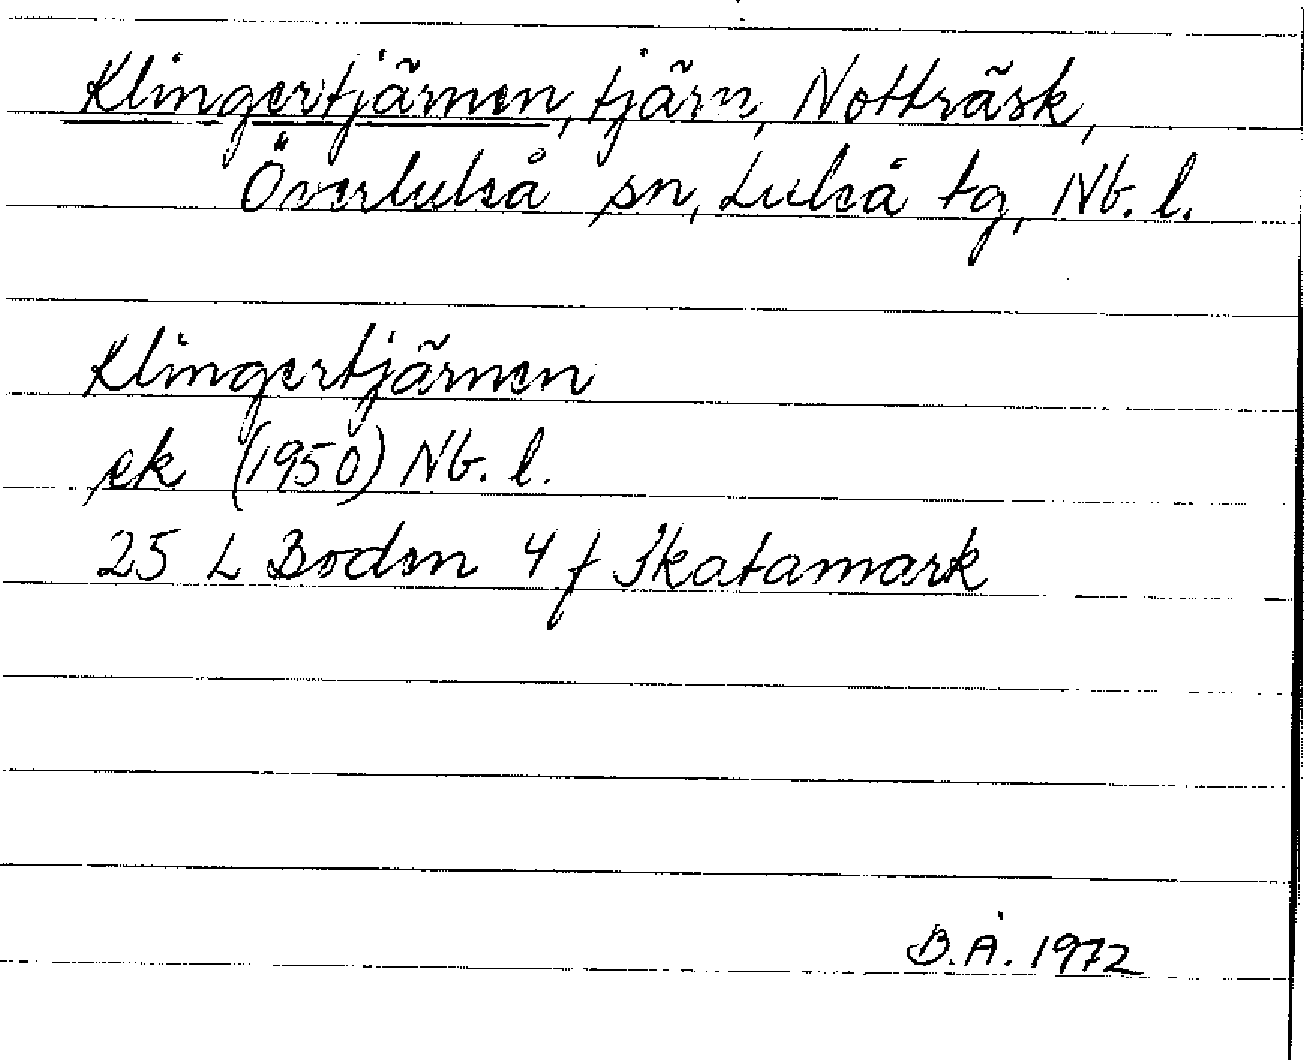 Klingertjärnen, tjärn, Notträsk,
Överluleå sn, Luleå tg, Nb. l.
Klingertjärnen
ek (1950) Nb. l.
25 L Boden 4 f Skatamark
B.Å. 1972